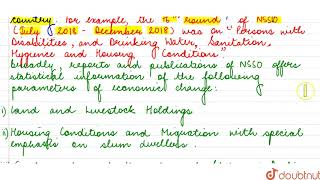 country. For example the " round" of NSSO
(July 2018 - December 2018) was on "Persons with
Disabilities, and Drinking Water, Sanitation,
Hygiene and Housing Conditions"
broadly, reports and publications of NSSO offers
statistical information of the following
parameters of economic change:
i) Land and Livestock Holdings
ii) Housing Conditions and Migration with special
emphasis on slum dwellers.
doubtnut